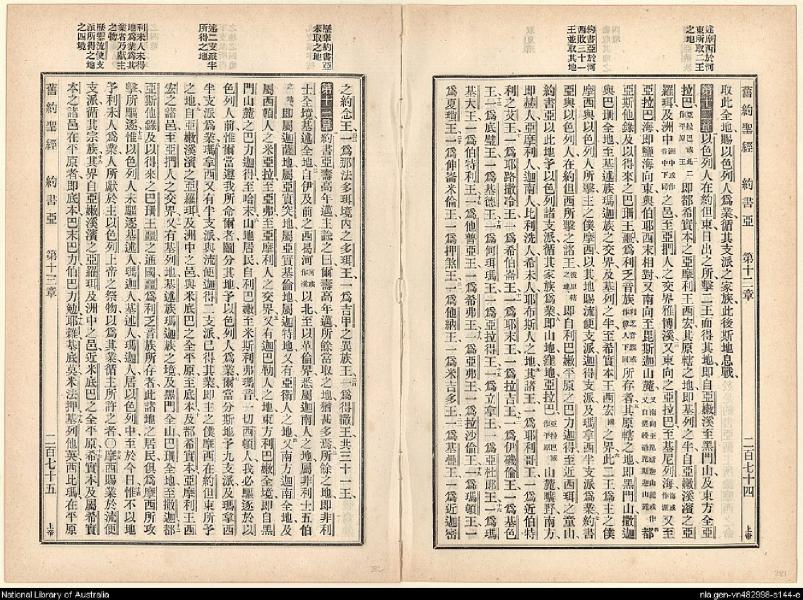 舊約聖經 約書亞 第十二章 二百七十四 上帝
達摩西於河東所取二王之地
約書亞於河西敗三十一王並取其地
取此全地賜以色列人爲業循其支派之家族此後斯地息戰
第十二章以色列人在約但東日出之所擊二王而得其地即自亞嫩溪至黑門山及東方全亞
拉巴
即都希實本之亞摩利王西宏其原轄之地即基列之半自亞嫩溪濱之亞
羅珥及洲中
之邑至亞捫人之交界雅博溪又東向之亞拉巴至基尼列海
又至
亞拉巴海即鹽海向東與伯耶西末相對又南向至毘斯迦山麓
都
亞斯他錄及以得來之巴珊王噩爲利乏音族
所存者其原轄之地即黑門山撒迦
與巴珊全地至基述族瑪迦族之交界及基列之半至希實本王西宏
之界此二王爲主之僕
摩西與以色列人所擊主之僕摩西以其地賜流便支派迦得支派及瑪拿西半支派爲業約書
亞與以色列人在約但西所擊之諸王
即自利巴嫩平原之巴力迦得至近西珥之童山
約書亞以此地予以色列諸支派循其家族爲業即山地窪地亞拉巴
山麓曠野南方
即赫人亞摩利人迦南人比利洗人希未人耶布斯人之地其諸王一爲耶利哥王一爲近伯特
利之艾王一爲耶路撒冷王一爲希伯崙王一爲耶末王一爲拉吉王一爲伊磯倫王一爲基色
王一爲底璧王一爲基德王一爲何珥瑪王一爲亞拉得王一爲立拿王一爲亞杜郎王一爲瑪
基大王一爲伯特利王一爲他普亞王一爲希弗王一爲亞弗王一爲拉沙倫王一爲瑪頓王一
爲夏瑣王一爲伸崙米倫王一爲押煞王一爲他納王一爲米吉多王一爲基疊王一爲近迦密
歷舉約書亞未取之地
述二支派半所得之地
利未人未得地爲業其業者乃獻主之物
歷舉流便支派所得之地之四境
之約念王一爲那法多珥境內之多珥王一爲吉甲之異族王一爲得撒王共三十一王
第十三章約書亞壽高年邁主諭之曰爾壽高年邁所餘當取之地猶甚多焉所餘之地即非利
士全境基述全地自伊及前之西曷河
以北至以革倫界悉屬迦南人之地屬非利士五伯
即屬迦薩地屬亞實突地屬亞實基倫地屬迦特地
又有亞衛人之地又南方迦南全地及
屬西頓人之米亞拉至亞弗至亞摩利人之交界又有迦巴勒人之地東方利巴嫩全境即自黑
門山麓之巴力迦得至哈末山地居民自利巴嫩至米斯利弗瑪音一切西頓人我必驅逐於以
色列人前惟爾當遵我所命爾者鬮分其地予以色列人爲業爾當分斯地予九支派及瑪拿西
半支派爲業瑪拿西又有半支派與流便迦得二支派已得其業即主之僕摩西在約但東所予
之地自亞嫩溪濱之亞羅珥及洲中之邑與米底巴之全平原至底本及都希實本亞摩利王西
宏之諸邑至亞捫人之交界又有基列地基述族瑪迦族之境及黑門全山巴珊全地至撒迦都
亞斯他錄及以得來之巴珊王噩之通國噩爲利乏音族所存者此諸地之居民俱爲摩西所攻
擊所驅逐惟以色列人未驅逐基述人瑪迦人基述人瑪迦人居以色列中至於今日惟不以地
予利未人爲業人所獻於主以色列上帝之祭物以爲其業循主所許之者○摩西賜業於流便
支派循其宗族其界自亞嫩溪濱之亞羅珥及洲中之邑近米底巴之全平原希實本及屬希實
本之諸邑在平原者即底本巴末巴力伯巴力勉耶雜基底莫米法押基列他英西比瑪在平原
舊約聖經 約書亞 第十三章 二百七十五 上帝
National Library of Australia
nla.gen-vn482998-s144-e